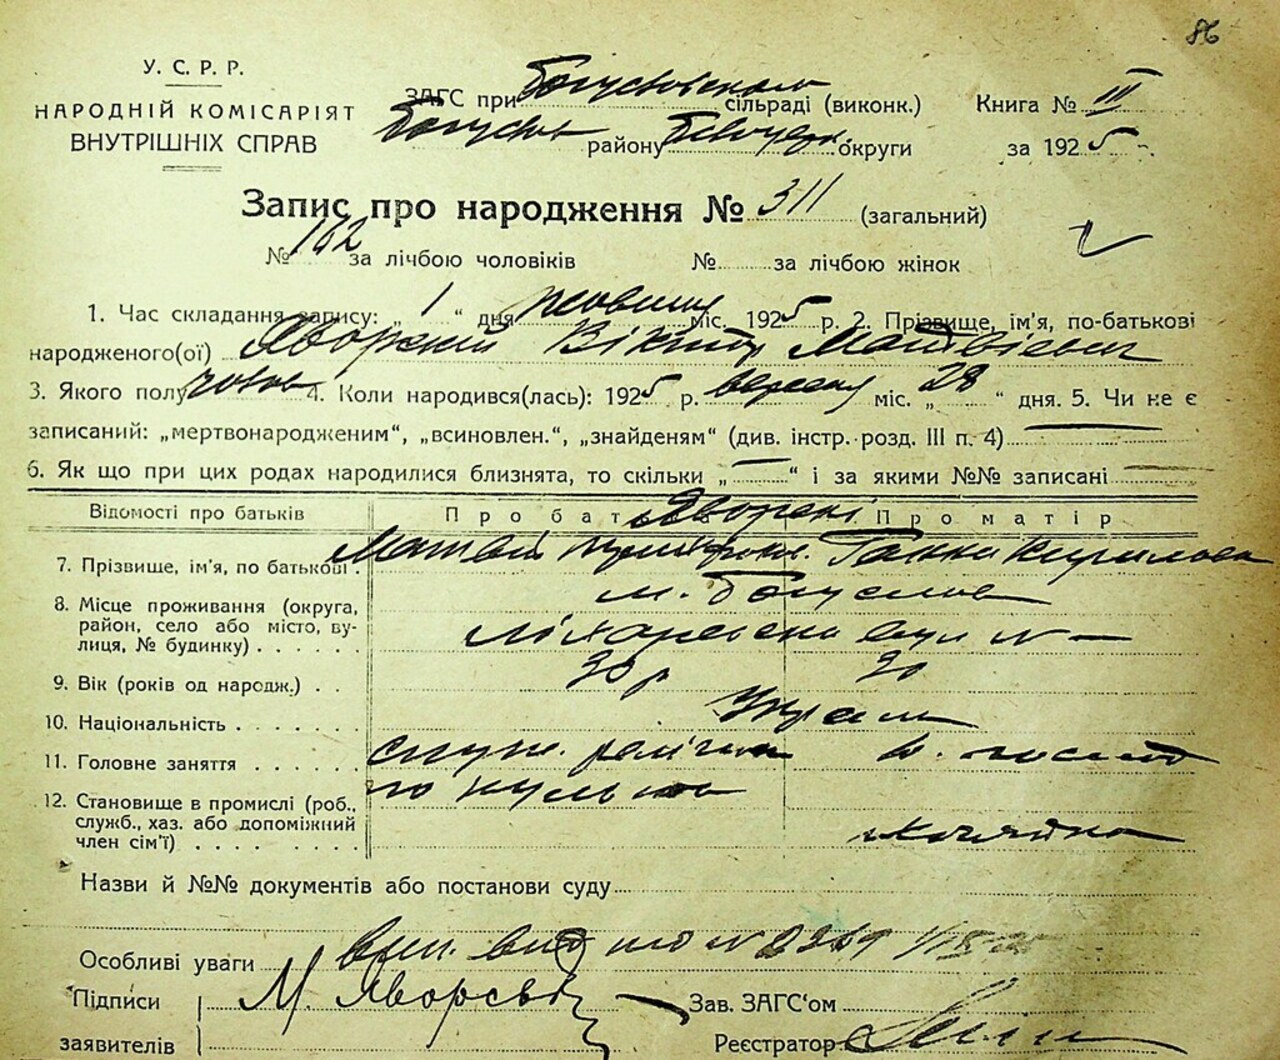 86
У. С. Р. Р.
НАРОДНІЙ КОМІСАРІЯТ
ВНУТРІШНІХ СПРАВ
ЗАГС при сільраді (виконк.) Книга № III
району округи за 1925
Запис про народження № 311 (загальний)
№ 162 за лічбою чоловіків № за лічбою жінок
1. Час складання запису: „ 1 “ дня жовтня міс. 1925 р. 2. Прізвище, ім'я, по-батькові
народженого(ої) Яворский Віктор Матвієвич
3. Якого полу чолов 4. Коли народився(лась): 1925 р. вересня міс. „ 28 “ дня. 5. Чи не є
записаний: „мертвонародженим“, „всиновлен.“, „знайденям“ (див. інстр. розд. III п. 4) —
6. Як що при цих родах народилися близнята, то скільки „ — “ і за якими №№ записані —
Відомості про батьків Про батька Яворскі Про матір
7. Прізвище, ім'я, по батькові Матвій Ганна Кирилова
8. Місце проживання (округа, район, село або місто, вулиця, № будинку) м. Богуслав
вул N —
9. Вік (років од народж.) 30 р 30
10. Національність Украін
11. Головне заняття служ. релігійн
12. Становище в промислі (роб., служб., хаз. або допоміжний член сім'ї) культа
Назви й №№ документів або постанови суду
Особливі уваги вип. вид
Підписи М. Яворский Зав. ЗАГС'ом
заявителів Реєстратор